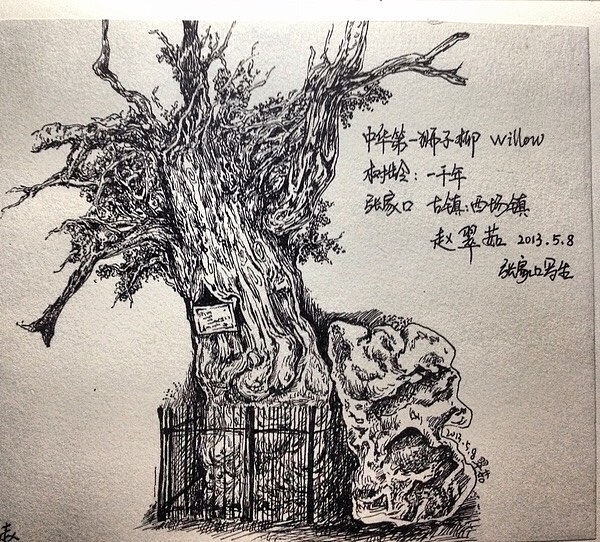 中华第一狮子柳 willow
树龄：一千年
张家口 古镇：西场镇
赵翠茹 2013.5.8
张家口写生
2013.5.8
赵